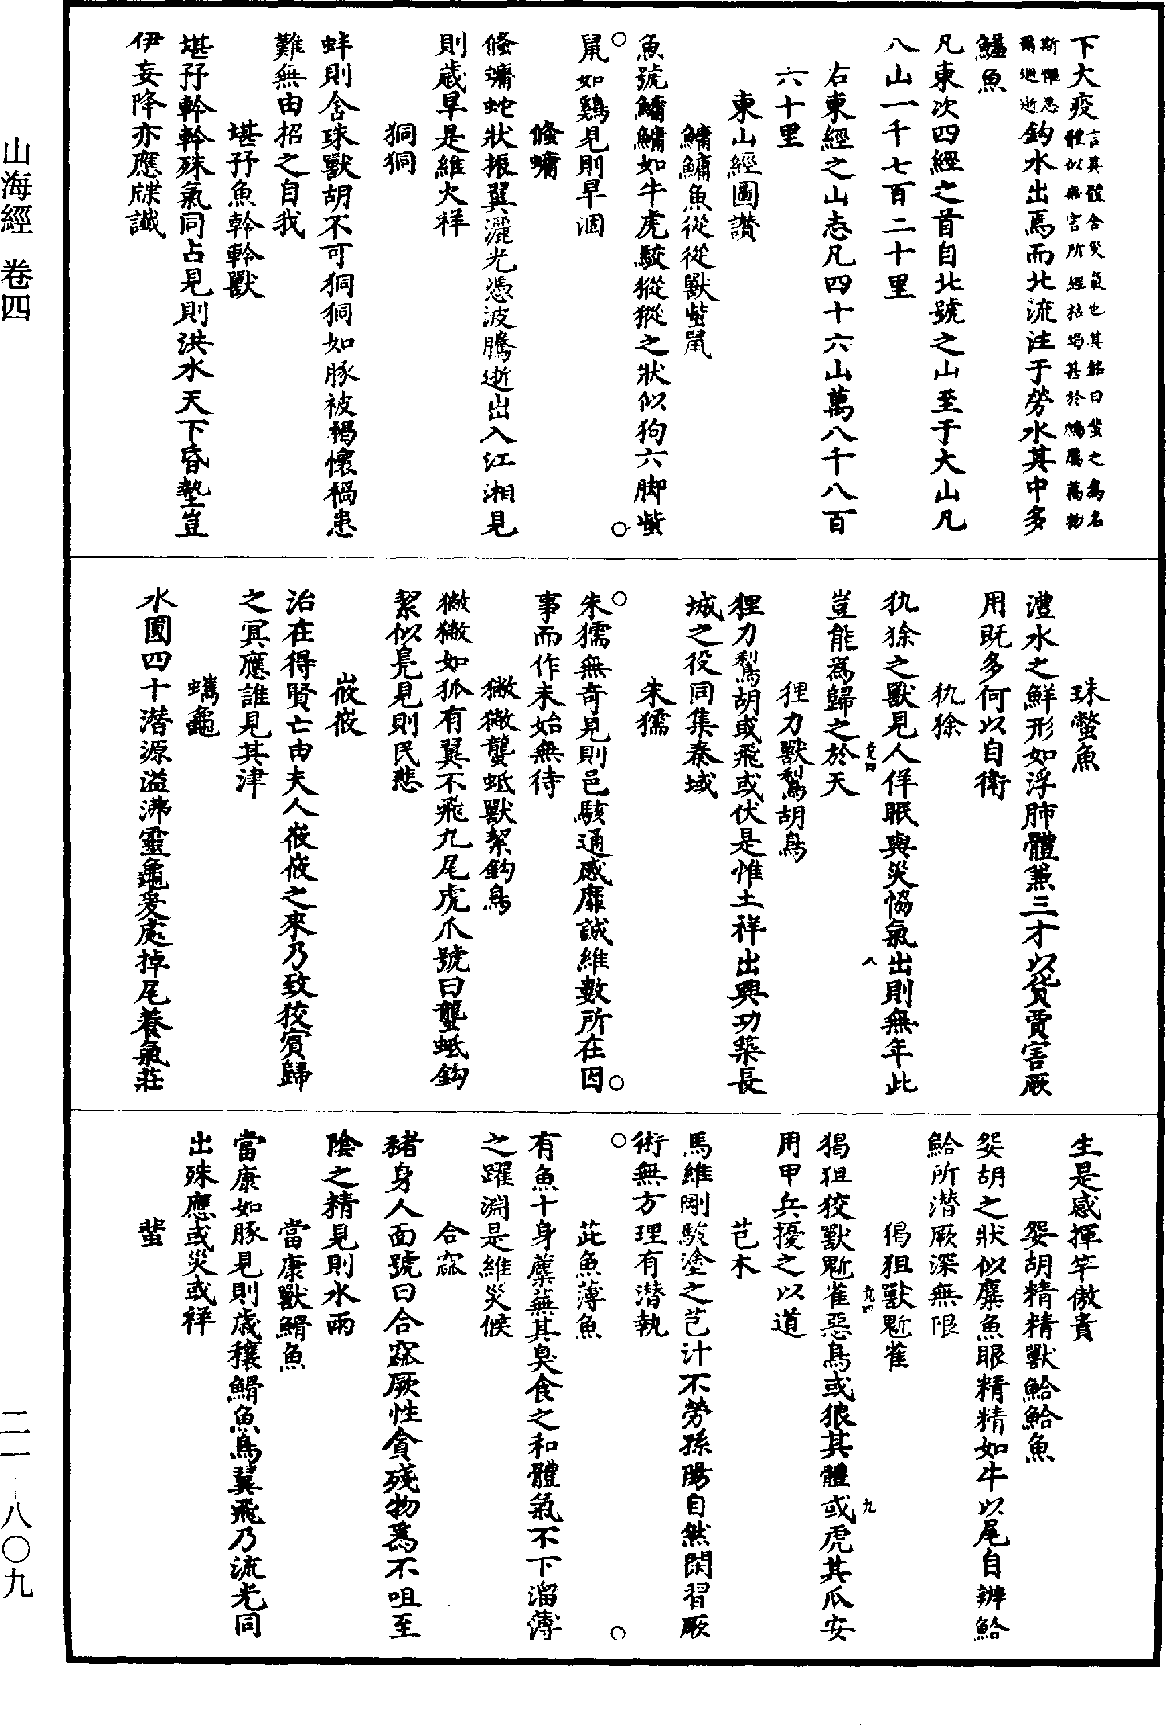 山海經 卷四
二一·八〇九
下大疫言其體含災氣也其銘曰蜚之為名
體似無害所經枯竭甚於鴆厲萬物
斯懼思爾遐逝鈎水出焉而北流注于勞水其中多
鱃魚
凡東次四經之首自北號之山至于大山凡
八山一千七百二十里
右東經之山志凡四十六山萬八千八百
六十里
東山經圖讚
鱅鱅魚從從獸蚩鼠
魚號鱅鱅如牛虎駮從從之狀似狗六脚蚩
鼠如鷄見則旱涸
偹蟰
偹蟰蛇狀振翼灑光憑波騰逝出入江湘見
則歲旱是維火祥
狪狪
蚌則含珠獸胡不可狪狪如豚被褐懷禍患
難無由招之自我
堪㐨魚軨軨獸
堪㐨軨軨殊氣同占見則洪水天下昏墊豈
伊妄降亦應牒讖
珠蟞魚
澧水之鮮形如浮肺體兼三才以貨賈害厥
用既多何以自衛
犰狳
犰狳之獸見人佯眠與災協氣出則無年此
豈能為歸之於天
狸力獸鴷胡鳥
狸力鴷胡或飛或伏是惟土祥出興功築長
城之役同集秦域
朱獳
朱獳無奇見則邑駭通感靡誠維數所在因
事而作未始無待
獙獙蠪蚳獸絜鈎鳥
獙獙如狐有翼不飛九尾虎爪號曰蠪蚳鈎
絜似鳧見則民悲
峳峳
治在得賢亡由夫人峳峳之來乃致狡賓歸
之冥應誰見其津
蠵龜
水圓四十潛源溢沸靈龜爰處掉尾養氣莊
生是感揮竿傲貴
妴胡精精獸鮯鮯魚
妴胡之狀似麋魚眼精精如牛以尾自辨鮯
鮯所潛厥深無限
猲狙獸鬿雀
猲狙狡獸鬿雀惡鳥或狼其體或虎其爪安
用甲兵擾之以道
芑木
馬維剛駿塗之芑汁不勞孫陽自然閑習厥
術無方理有潛執
茈魚薄魚
有魚十身蘪蕪其臭食之和體氣不下溜薄
之躍淵是維災候
合窳
豬身人面號曰合窳厥性貪殘物為不咀至
陰之精見則水雨
當康獸鰼魚
當康如豚見則歲穰鰼魚鳥翼飛乃流光同
出殊應或災或祥
蜚